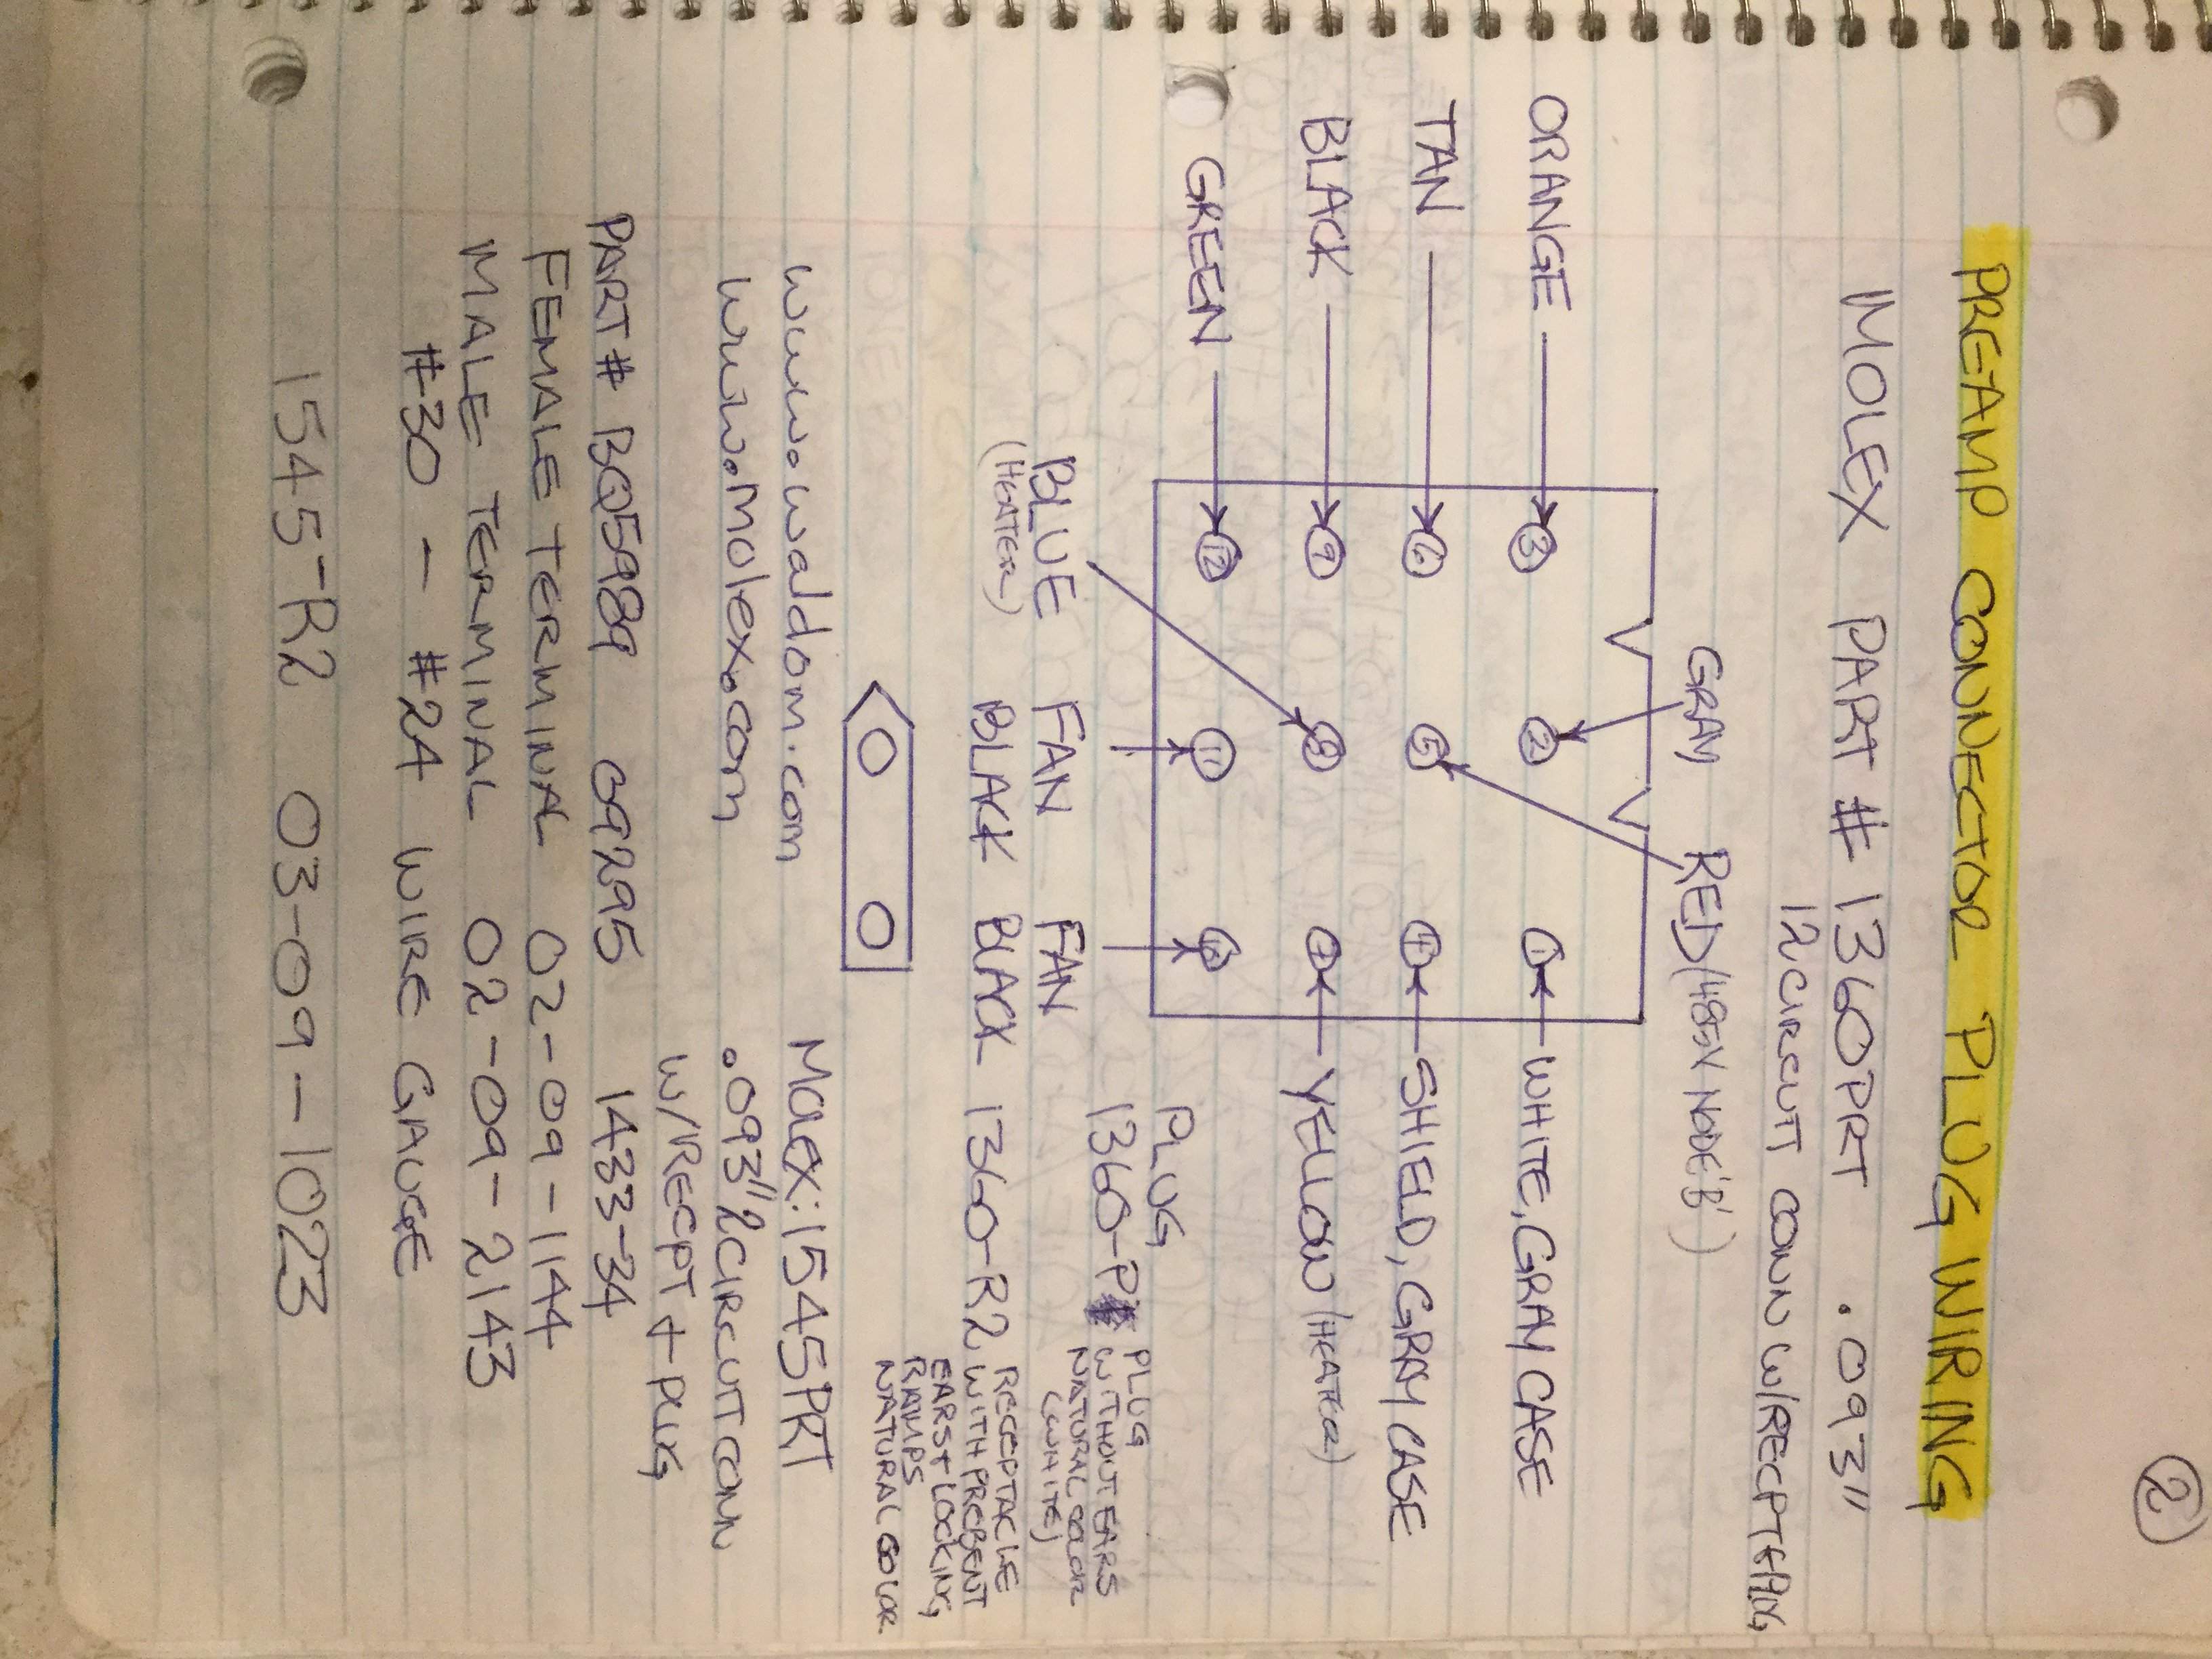 2
PREAMP CONNECTOR PLUG WIRING
MOLEX PART # 1360PRT .093"
12 CIRCUIT CONN W/RECPT+PLUG
GRAY RED (485V NODE 'B')
ORANGE → 3 2 1 ← WHITE, GRAY CASE
TAN → 6 5 4 ← SHIELD, GRAY CASE
BLACK → 9 8 7 ← YELLOW (HEATER)
GREEN → 12 11 10
BLUE FAN FAN
(HEATER) BLACK BLACK
PLUG
1360-P
PLUG
WITHOUT EARS
NATURAL COLOR
(WHITE)
1360-R2
RECEPTACLE
WITH PREBENT
EARS + LOCKING
RAMPS
NATURAL COLOR
www.waldom.com
www.molex.com
MOLEX: 1545PRT
.093" 2 CIRCUIT CONN
W/RECPT + PLUG
PART # BQ5989 09295 1433-34
FEMALE TERMINAL 02-09-1144
MALE TERMINAL 02-09-2143
#30 - #24 WIRE GAUGE
1545-R2 03-09-1023